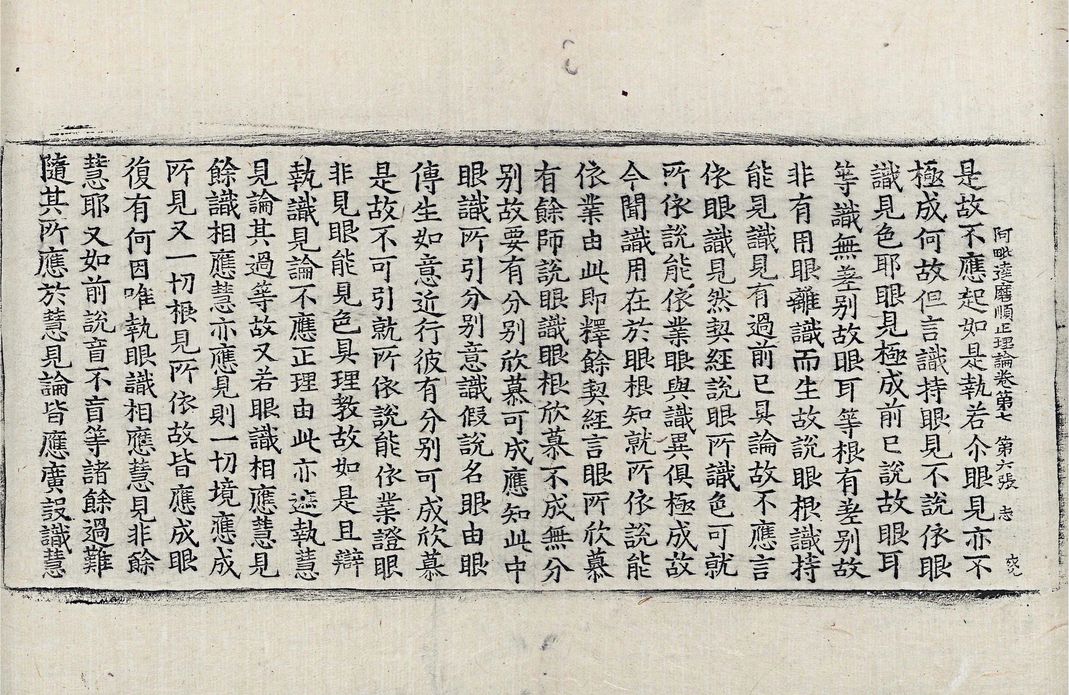 阿毗達磨順正理論卷第七 第六張 志
是故不應起如是執若尒眼見亦不
極成何故但言識持眼見不說依眼
識見色耶眼見極成前已說故眼耳
等識無差別故眼耳等根有差別故
非有用眼離識而生故說眼根識持
能見識見有過前已具論故不應言
依眼識見然契經說眼所識色可就
所依說能依業眼與識異俱極成故
今聞識用在於眼根知就所依說能
依業由此即釋餘契經言眼所欣慕
有餘師說眼識眼根欣慕不成無分
別故要有分別欣慕可成應知此中
眼識所引分別意識假說名眼由眼
傳生如意近行彼有分別可成欣慕
是故不可引就所依說能依業證眼
非見眼能見色具理教故如是且辯
執識見論不應正理由此亦遮執慧
見論其過等故又若眼識相應慧見
餘識相應慧亦應見則一切境應成
所見又一切根見所依故皆應成眼
復有何因唯執眼識相應慧見非餘
慧耶又如前說盲不盲等諸餘過難
隨其所應於慧見論皆應廣設識慧